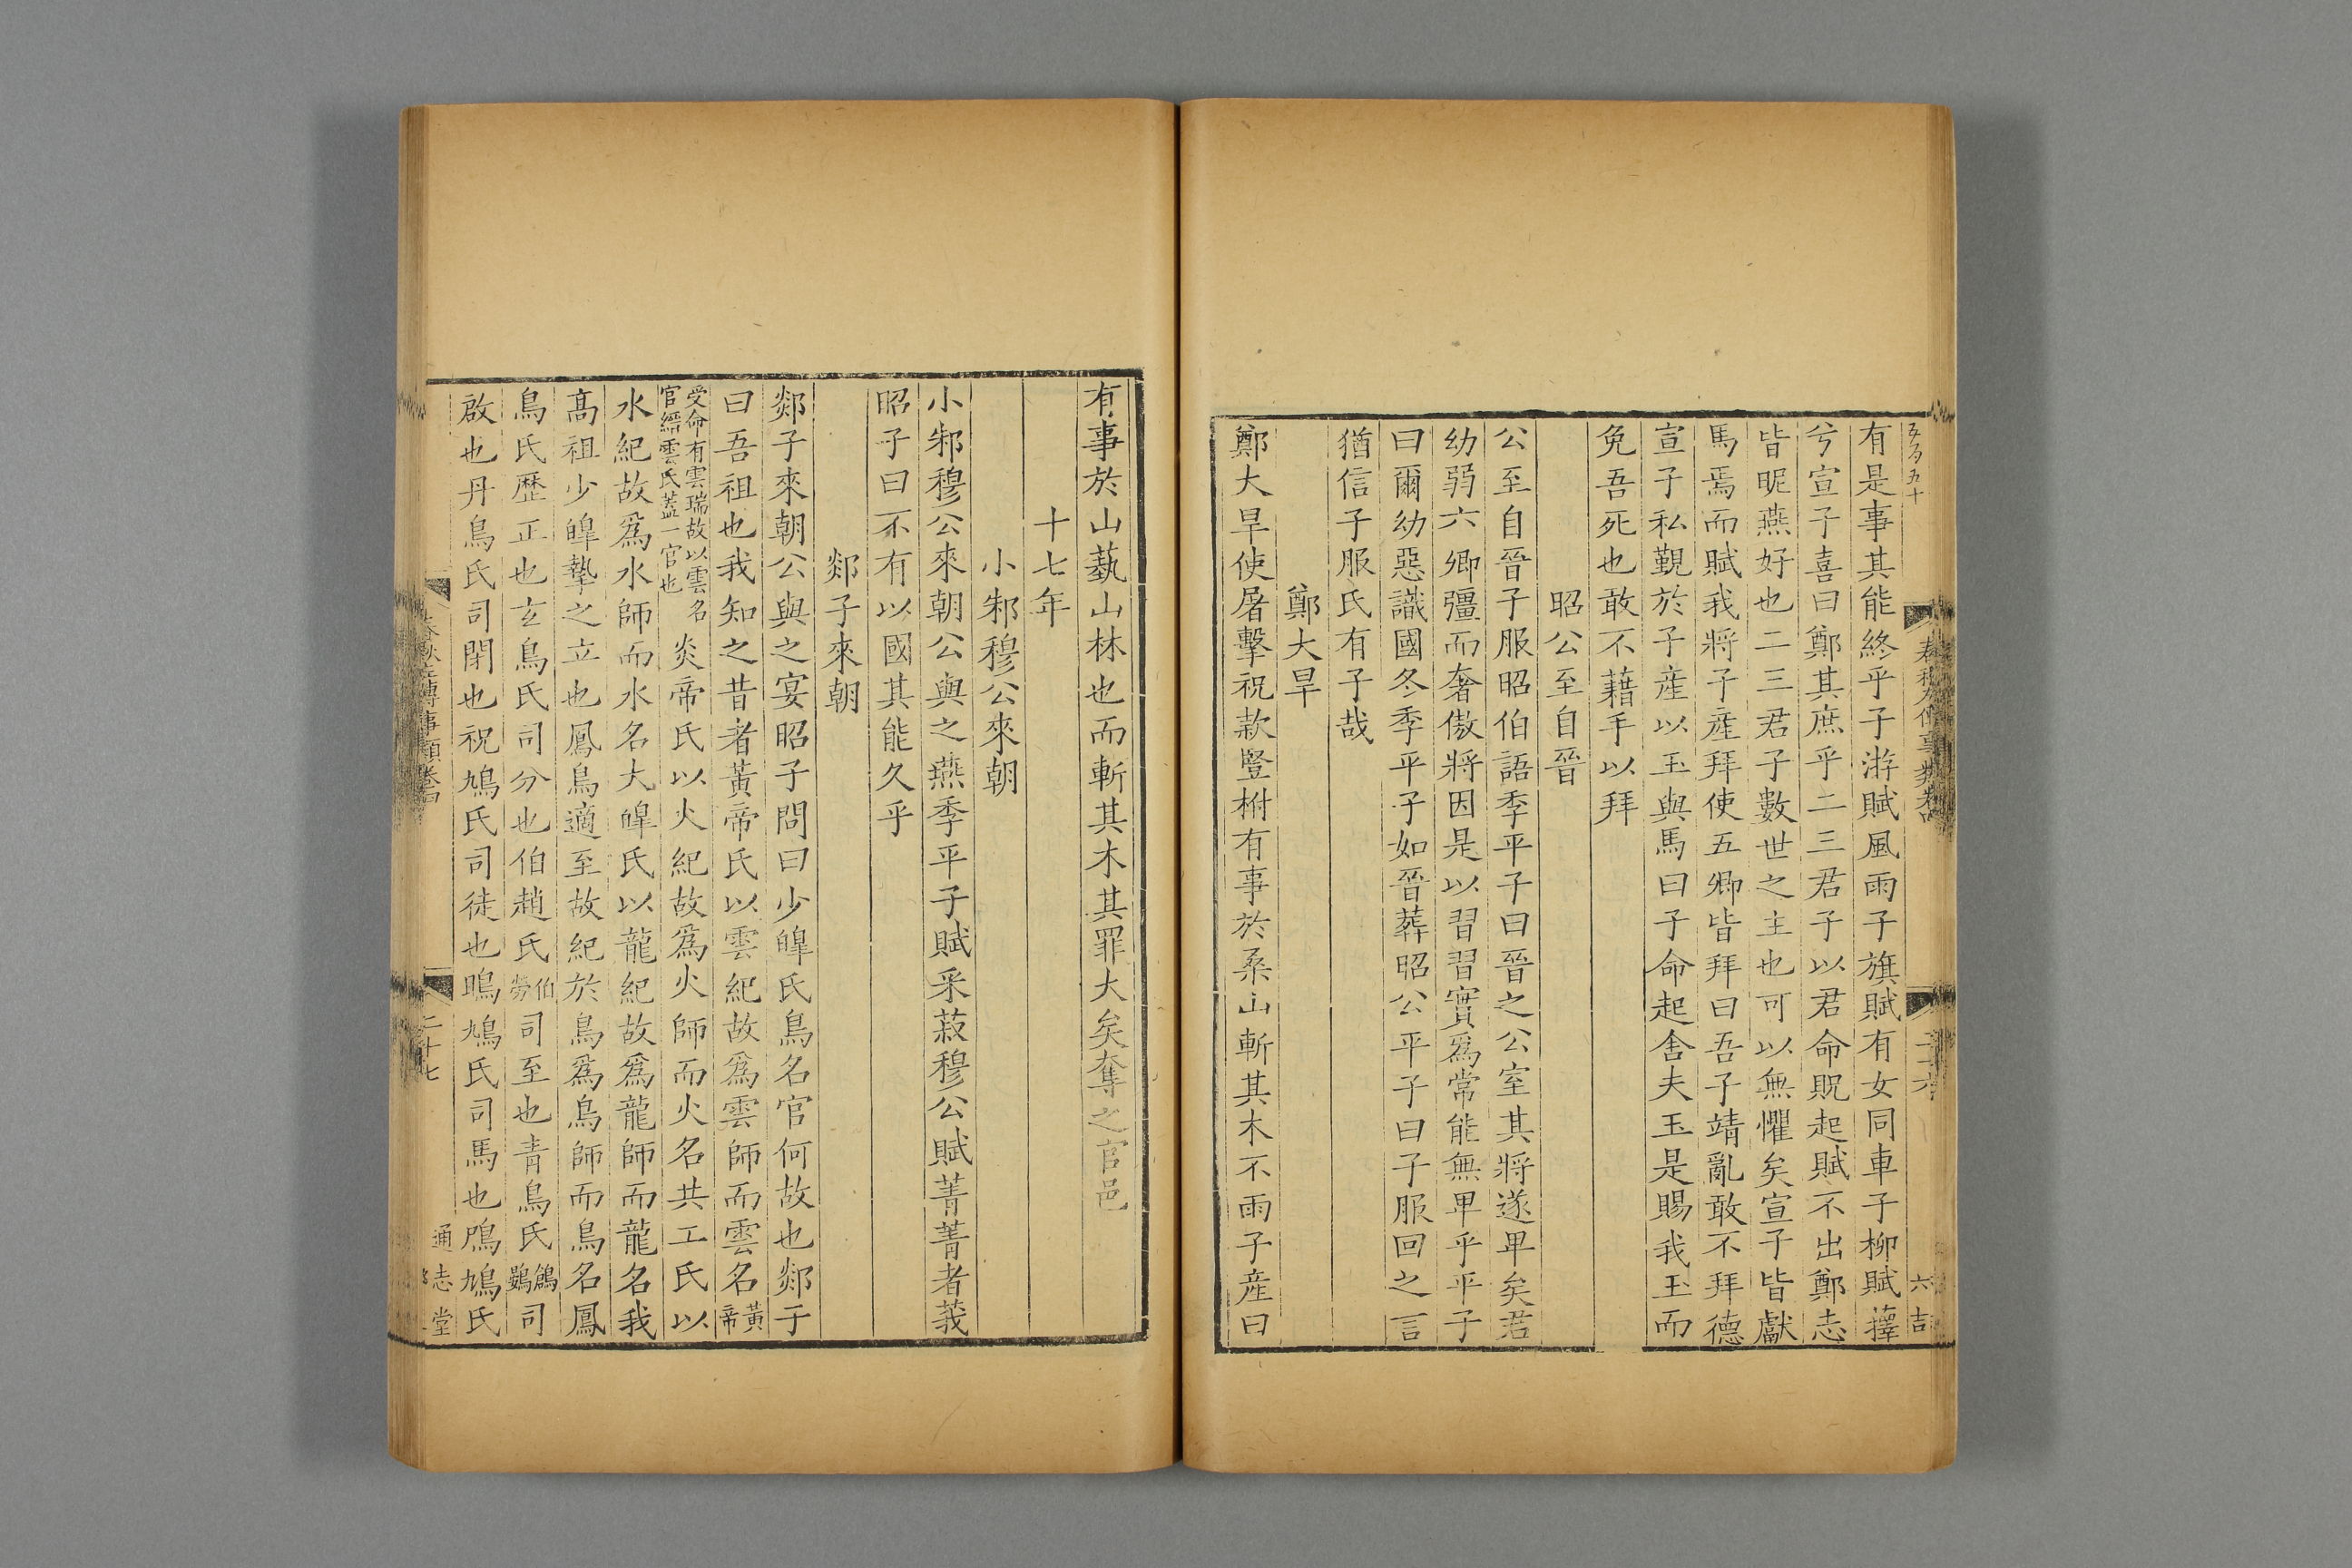 五百五十
春秋左傳事類卷四
二十六
六吉
有是事其能終乎子游賦風雨子旗賦有女同車子柳賦蘀
兮宣子喜曰鄭其庶乎二三君子以君命貺起賦不出鄭志
皆昵燕好也二三君子數世之主也可以無懼矣宣子皆獻
馬焉而賦我將子産拜使五卿皆拜曰吾子靖亂敢不拜德
宣子私覲於子産以玉與馬曰子命起舍夫玉是賜我玉而
免吾死也敢不藉手以拜
昭公至自晉
公至自晉子服昭伯語季平子曰晉之公室其將遂卑矣君
幼弱六卿彊而奢傲將因是以習習實爲常能無卑乎平子
曰爾幼惡識國冬季平子如晉葬昭公平子曰子服回之言
猶信子服氏有子哉
鄭大旱
鄭大旱使屠擊祝款豎柎有事於桑山斬其木不雨子産曰
有事於山蓺山林也而斬其木其罪大矣奪之官邑
十七年
小邾穆公來朝
小邾穆公來朝公與之燕季平子賦采菽穆公賦菁菁者莪
昭子曰不有以國其能久乎
郯子來朝
郯子來朝公與之宴昭子問曰少皥氏鳥名官何故也郯子
曰吾祖也我知之昔者黃帝氏以雲紀故爲雲師而雲名黃帝
受命有雲瑞故以雲名官縉雲氏蓋一官也炎帝氏以火紀故爲火師而火名共工氏以
水紀故爲水師而水名大皥氏以龍紀故爲龍師而龍名我
高祖少皥摯之立也鳳鳥適至故紀於鳥爲鳥師而鳥名鳳
鳥氏歷正也玄鳥氏司分也伯趙氏伯勞司至也青鳥氏鶬鷃司
啟也丹鳥氏司閉也祝鳩氏司徒也鴡鳩氏司馬也鳲鳩氏
春秋左傳事類卷四
二十七
通志堂